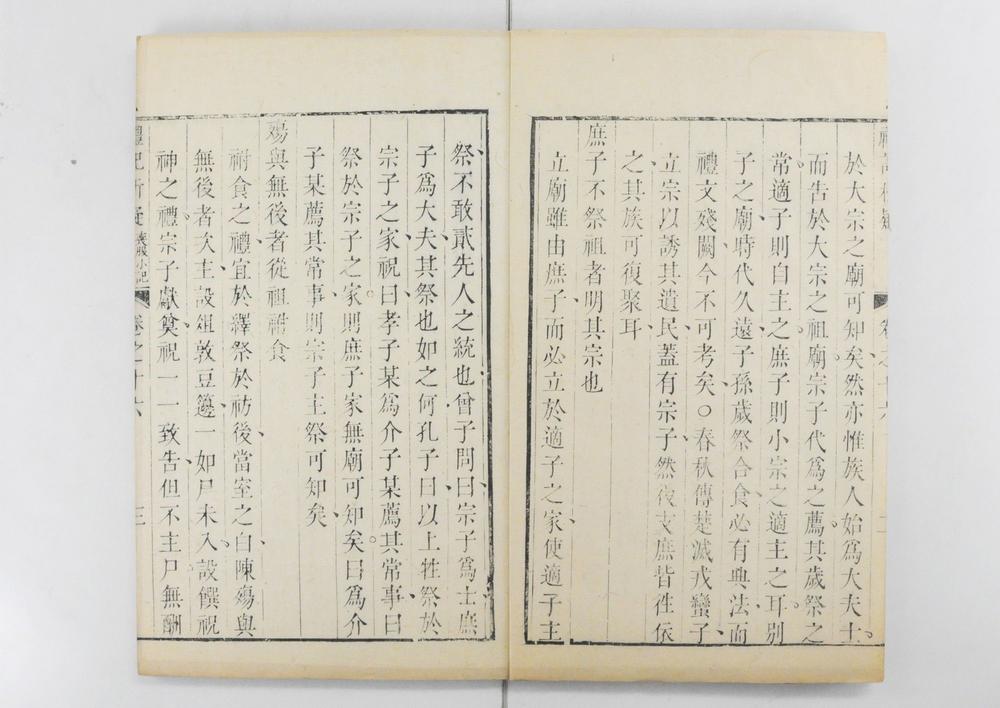 於大宗之廟可知矣然亦惟族人始為大夫士
而告於大宗之祖廟宗子代為之薦其歲祭之
常適子則自主之庶子則小宗之適主之耳別
子之廟時代久遠子孫歲祭合食必有典法而
禮文殘闕今不可考矣○春秋傳楚滅戎蠻子
立宗以誘其遺民蓋有宗子然後支庶皆往依
之其族可復聚耳
庶子不祭祖者明其宗也
立廟雖由庶子而必立於適子之家使適子主
祭不敢貳先人之統也曾子問曰宗子為士庶
子為大夫其祭也如之何孔子曰以上牲祭於
宗子之家祝曰孝子某為介子某薦其常事曰
祭於宗子之家則庶子家無廟可知矣曰為介
子某薦其常事則宗子主祭可知矣
殤與無後者從祖祔食
祔食之禮宜於繹祭於祊後當室之白陳殤與
無後者次主設俎敦豆籩一如尸未入設饌祝
神之禮宗子獻奠祝一一致告但不主尸無酬
禮記析疑 喪服小記 卷之十六 三